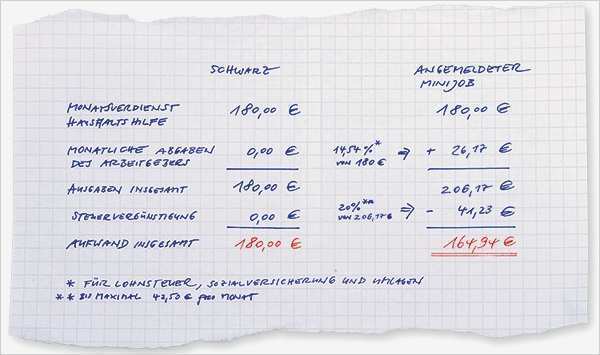 SCHWARZ ANGEMELDETER
MINIJOB
MONATSVERDIENST
HAUSHALTSHILFE 180,00 € 180,00 €
MONATLICHE ABGABEN
DES ARBEITGEBERS 0,00 € 14,54 %* VON 180 € ⇒ + 26,17 €
AUSGABEN INSGESAMT 180,00 € 206,17 €
STEUERVERGÜNSTIGUNG 0,00 € 20%** VON 206,17 € ⇒ - 41,23 €
AUFWAND INSGESAMT 180,00 € 164,94 €
* FÜR LOHNSTEUER, SOZIALVERSICHERUNG UND UMLAGEN
** BIS MAXIMAL 42,50 € PRO MONAT